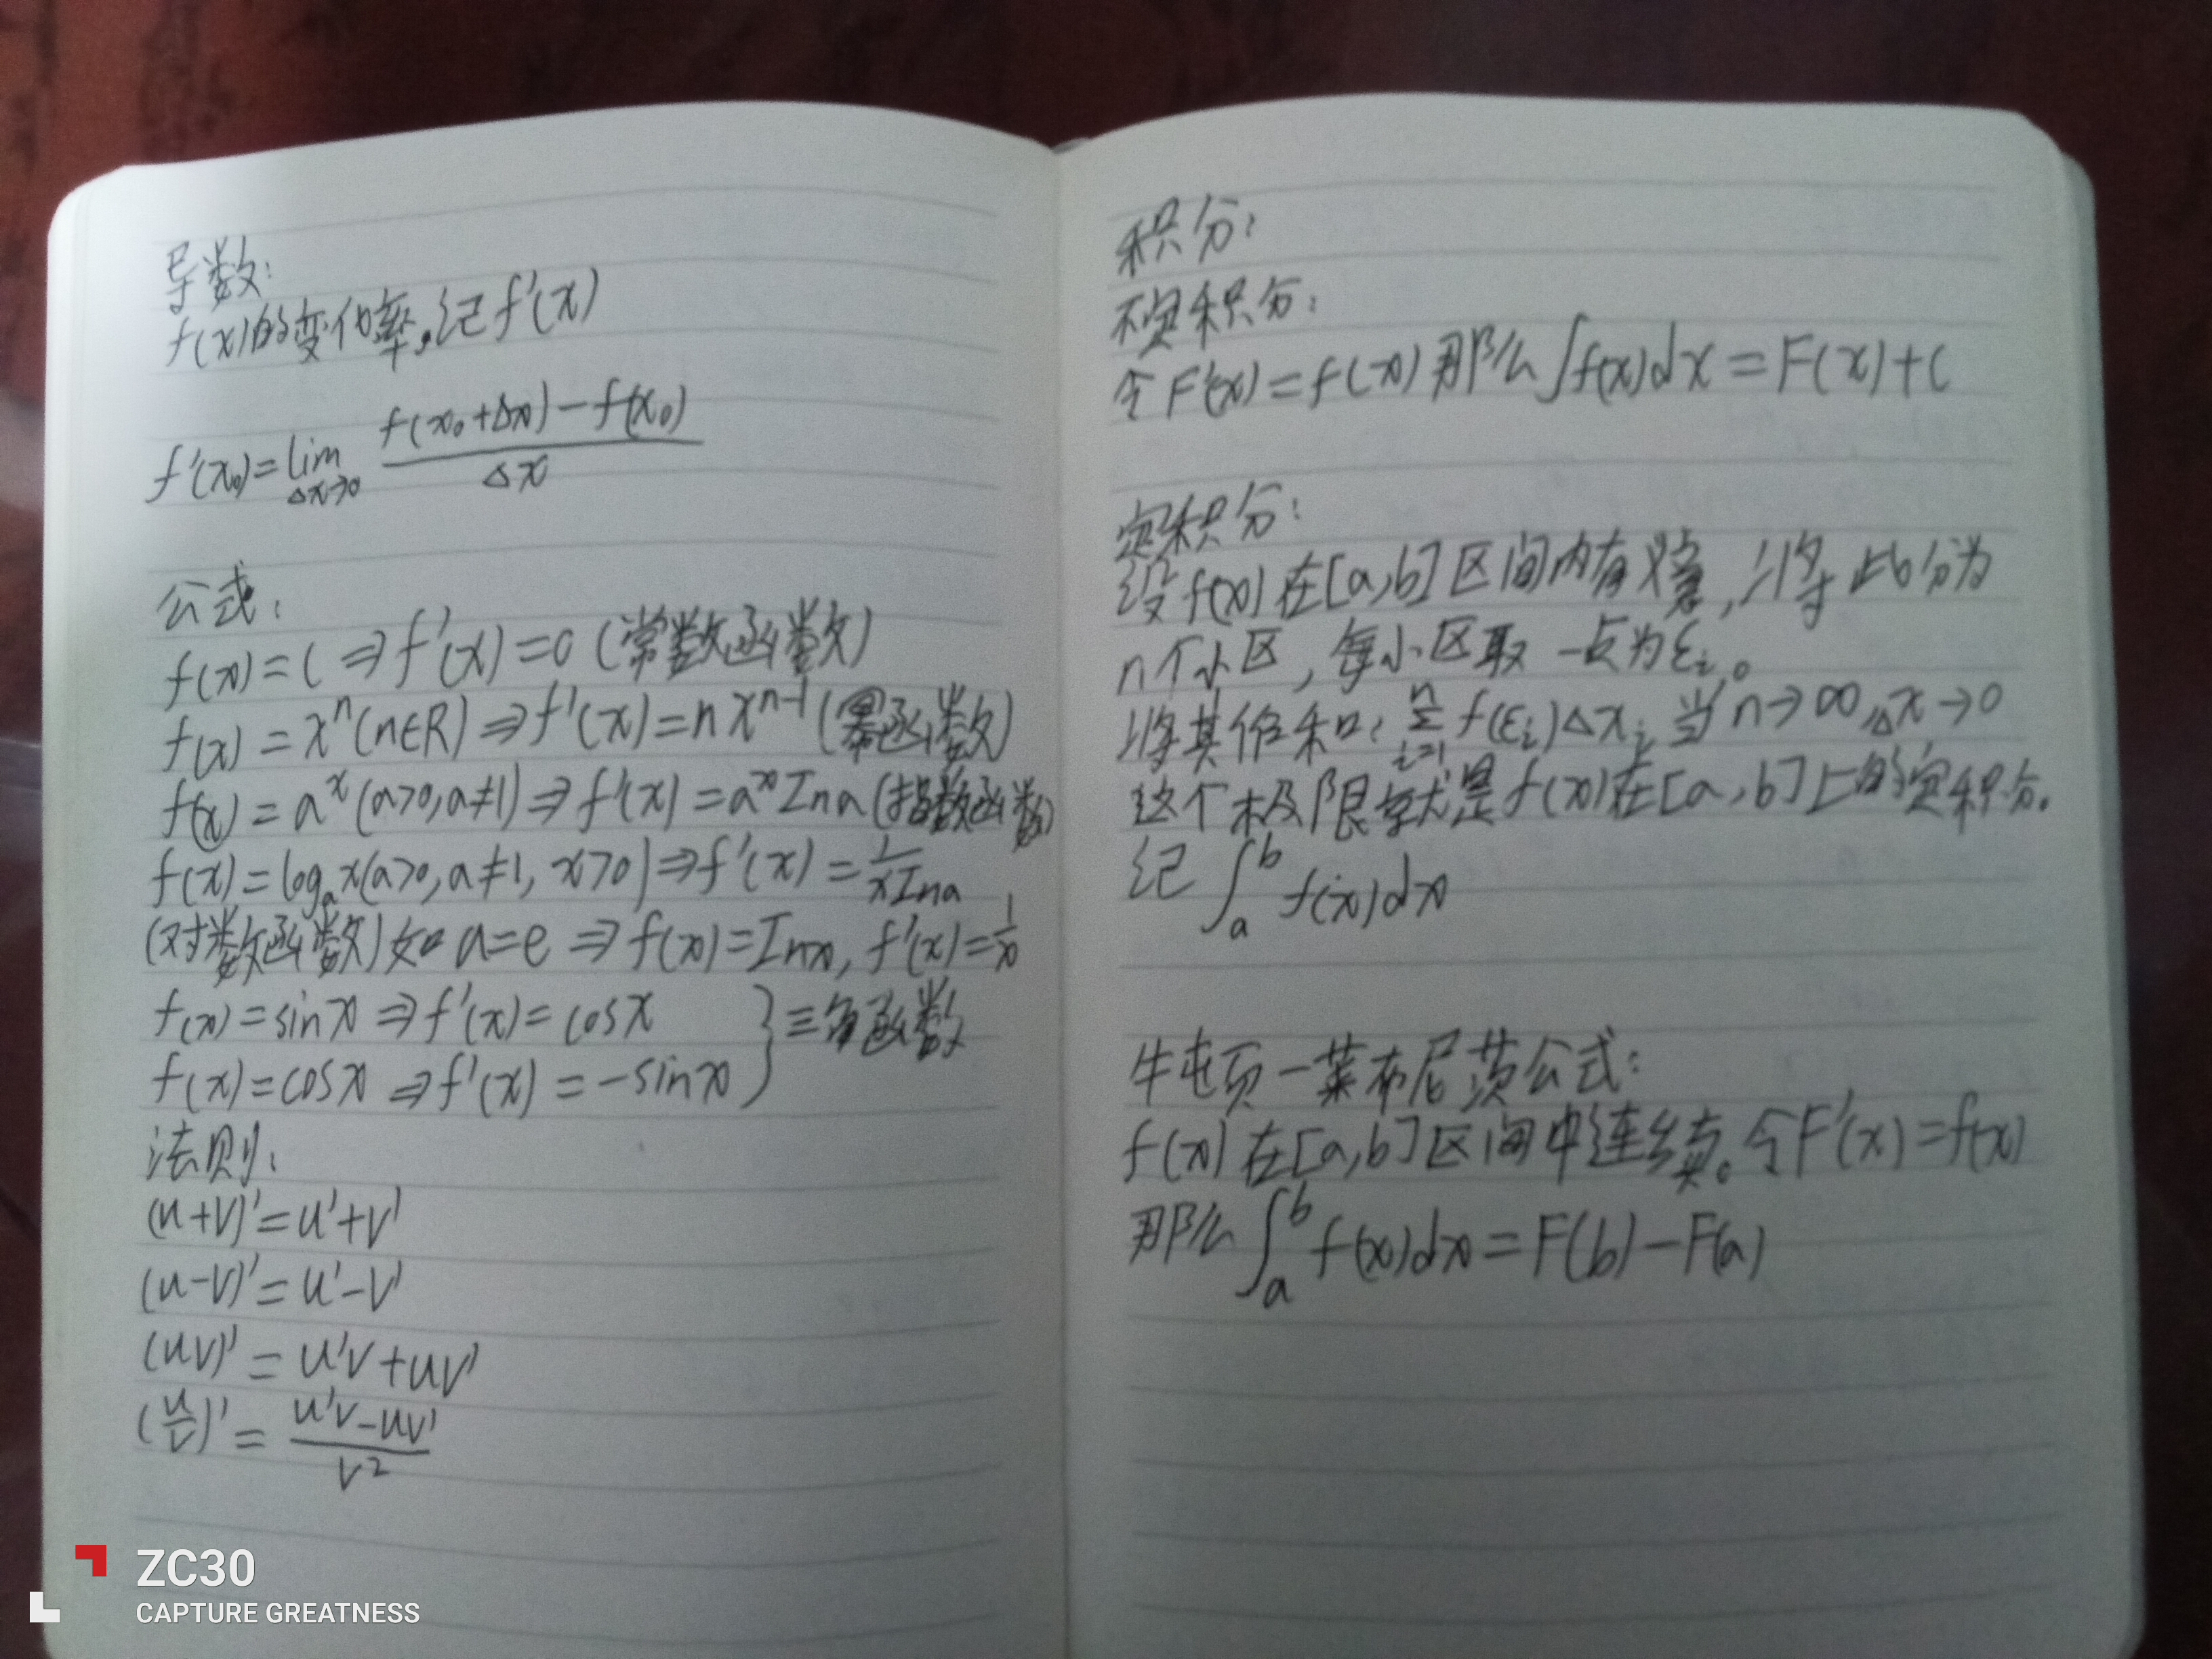 导数:
f(x)的变化率。记f'(x)
f'(x₀)=lim Δx→0 (f(x₀+Δx)-f(x₀))/Δx
公式:
f(x)=C⇒f'(x)=0(常数函数)
f(x)=xⁿ(n∈R)⇒f'(x)=nxⁿ⁻¹(幂函数)
f(x)=aˣ(a>0,a≠1)⇒f'(x)=aˣIna(指数函数)
f(x)=logₐx(a>0,a≠1,x>0)⇒f'(x)=1/(xIna)
(对数函数)如a=e⇒f(x)=Inx,f'(x)=1/x
f(x)=sinx⇒f'(x)=cosx }三角函数
f(x)=cosx⇒f'(x)=-sinx
法则:
(u+v)'=u'+v'
(u-v)'=u'-v'
(uv)'=u'v+uv'
(u/v)'=(u'v-uv')/v²
积分:
不定积分:
令F'(x)=f(x)那么∫f(x)dx=F(x)+C
定积分:
设f(x)在[a,b]区间内有意,将此分为
n个小区,每小区取一点为εᵢ。
将其作和:Σⁿᵢ₌₁ f(εᵢ)Δxᵢ 当n→∞,Δx→0
这个极限就是f(x)在[a,b]上的定积分。
记∫ₐᵇf(x)dx
牛顿-莱布尼茨公式:
f(x)在[a,b]区间中连续。令F'(x)=f(x)
那么∫ₐᵇf(x)dx=F(b)-F(a)
ZC30
CAPTURE GREATNESS